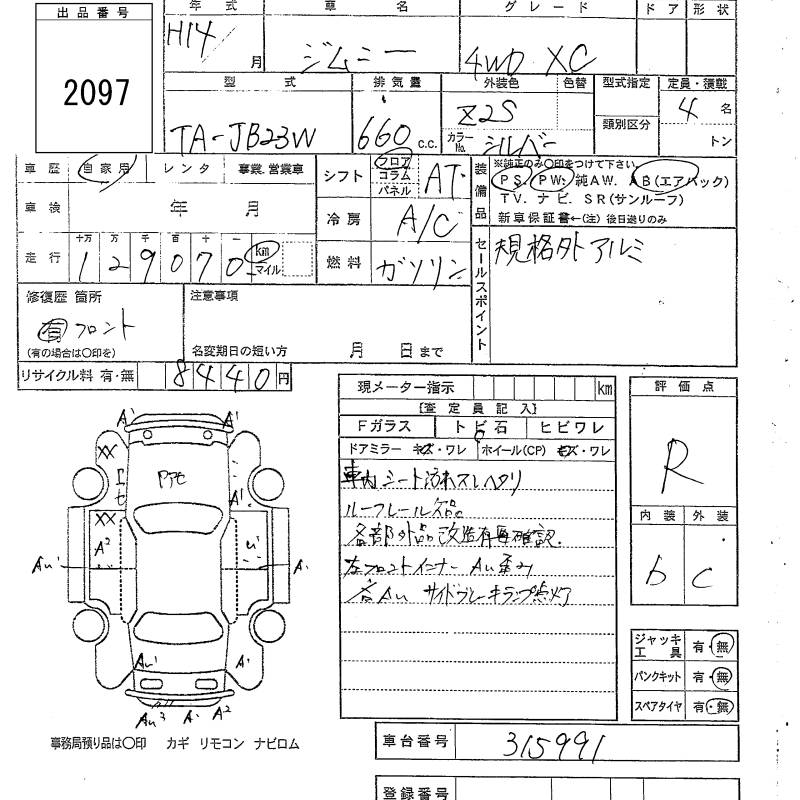 出品番号
2097
年式 車名 グレード ドア 形状
H14 月 ジムニー 4WD XC
型式 排気量 外装色 色替 型式指定 定員・積載
TA-JB23W 660 c.c. Z2S カラーNo. シルバー 類別区分 4 名 トン
車歴 自家用 レンタ 事業、営業車
シフト フロア コラム パネル AT
装備品 ※純正のみ〇印をつけて下さい。
PS. PW. 純AW. AB(エアバック)
TV. ナビ. SR(サンルーフ)
新車保証書←(注) 後日送りのみ
車検 年 月
冷房 A/C
走行 十万 万 千 百 十 一
129070 km マイル
燃料 ガソリン
セールスポイント 規格外アルミ
修復歴 箇所
有 フロント
(有の場合は〇印を)
注意事項
名変期日の短い方 月 日まで
リサイクル料 有・無 8440円
現メーター指示 km
【査定員記入】
Fガラス トビ石 ヒビワレ
ドアミラー キズ・ワレ ホイール(CP) キズ・ワレ
車内シート汚れスレヘタリ
ルーフレール欠品
各部外品改造有再確認.
左フロントインナー AU歪み
右AU サイドブレーキランプ点灯
評価点
R
内装 外装
b C
ジャッキ工具 有・無
パンクキット 有・無
スペアタイヤ 有・無
A' A'
XX
エセ
Pアセ
A'
XX
A²
u'
AU' A.
AU' A'
AU³ A. A²
事務局預り品は〇印 カギ リモコン ナビロム
車台番号 315991
登録番号